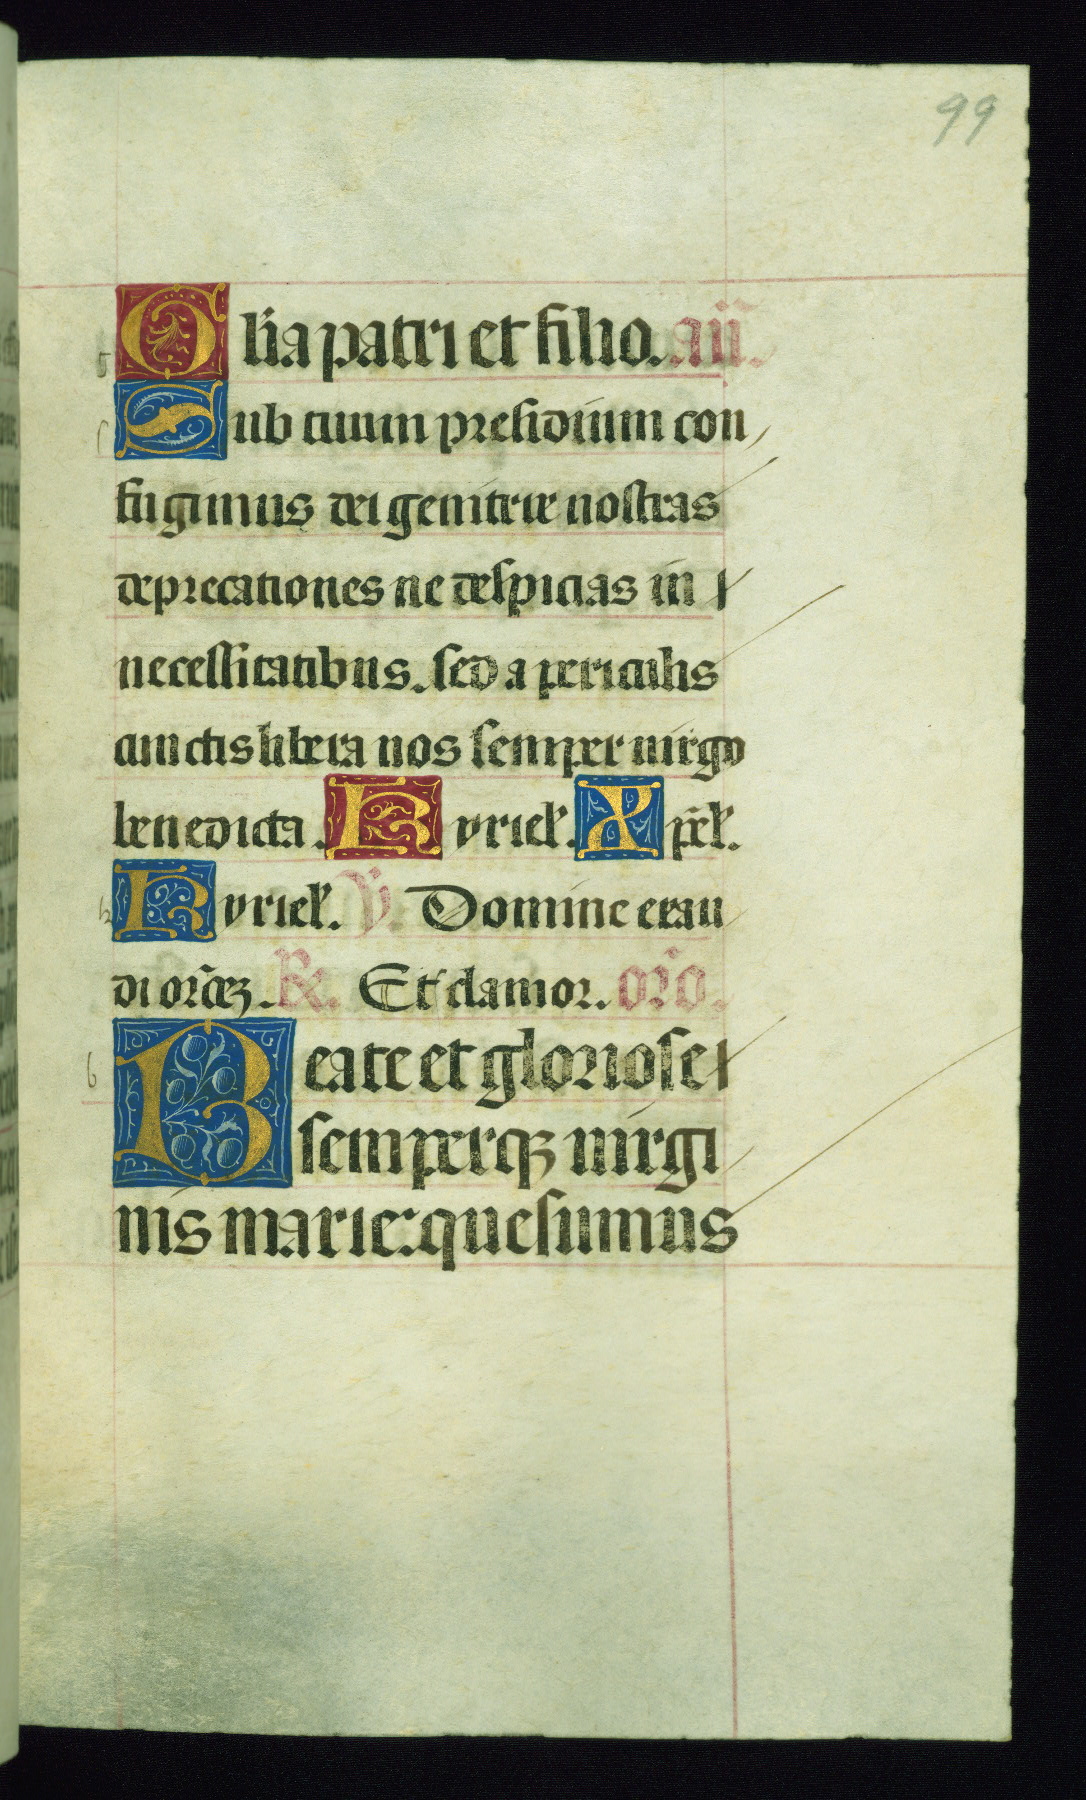 99
Gl̄ia patri et filio. añ.
Sub tuum presidium con
fugimus dei genitrix nostras
deprecationes ne despicias in
necessitatibus. sed a periculis
cunctis libera nos semper uirgo
benedicta. Kyriel. Xp̄el.
Kyriel. V. Domine exau
di or̄oēꝫ. R. Et clamor. or̄o.
Beate et gloriose
semperqꝫ uirgi
nis marie: quesumus